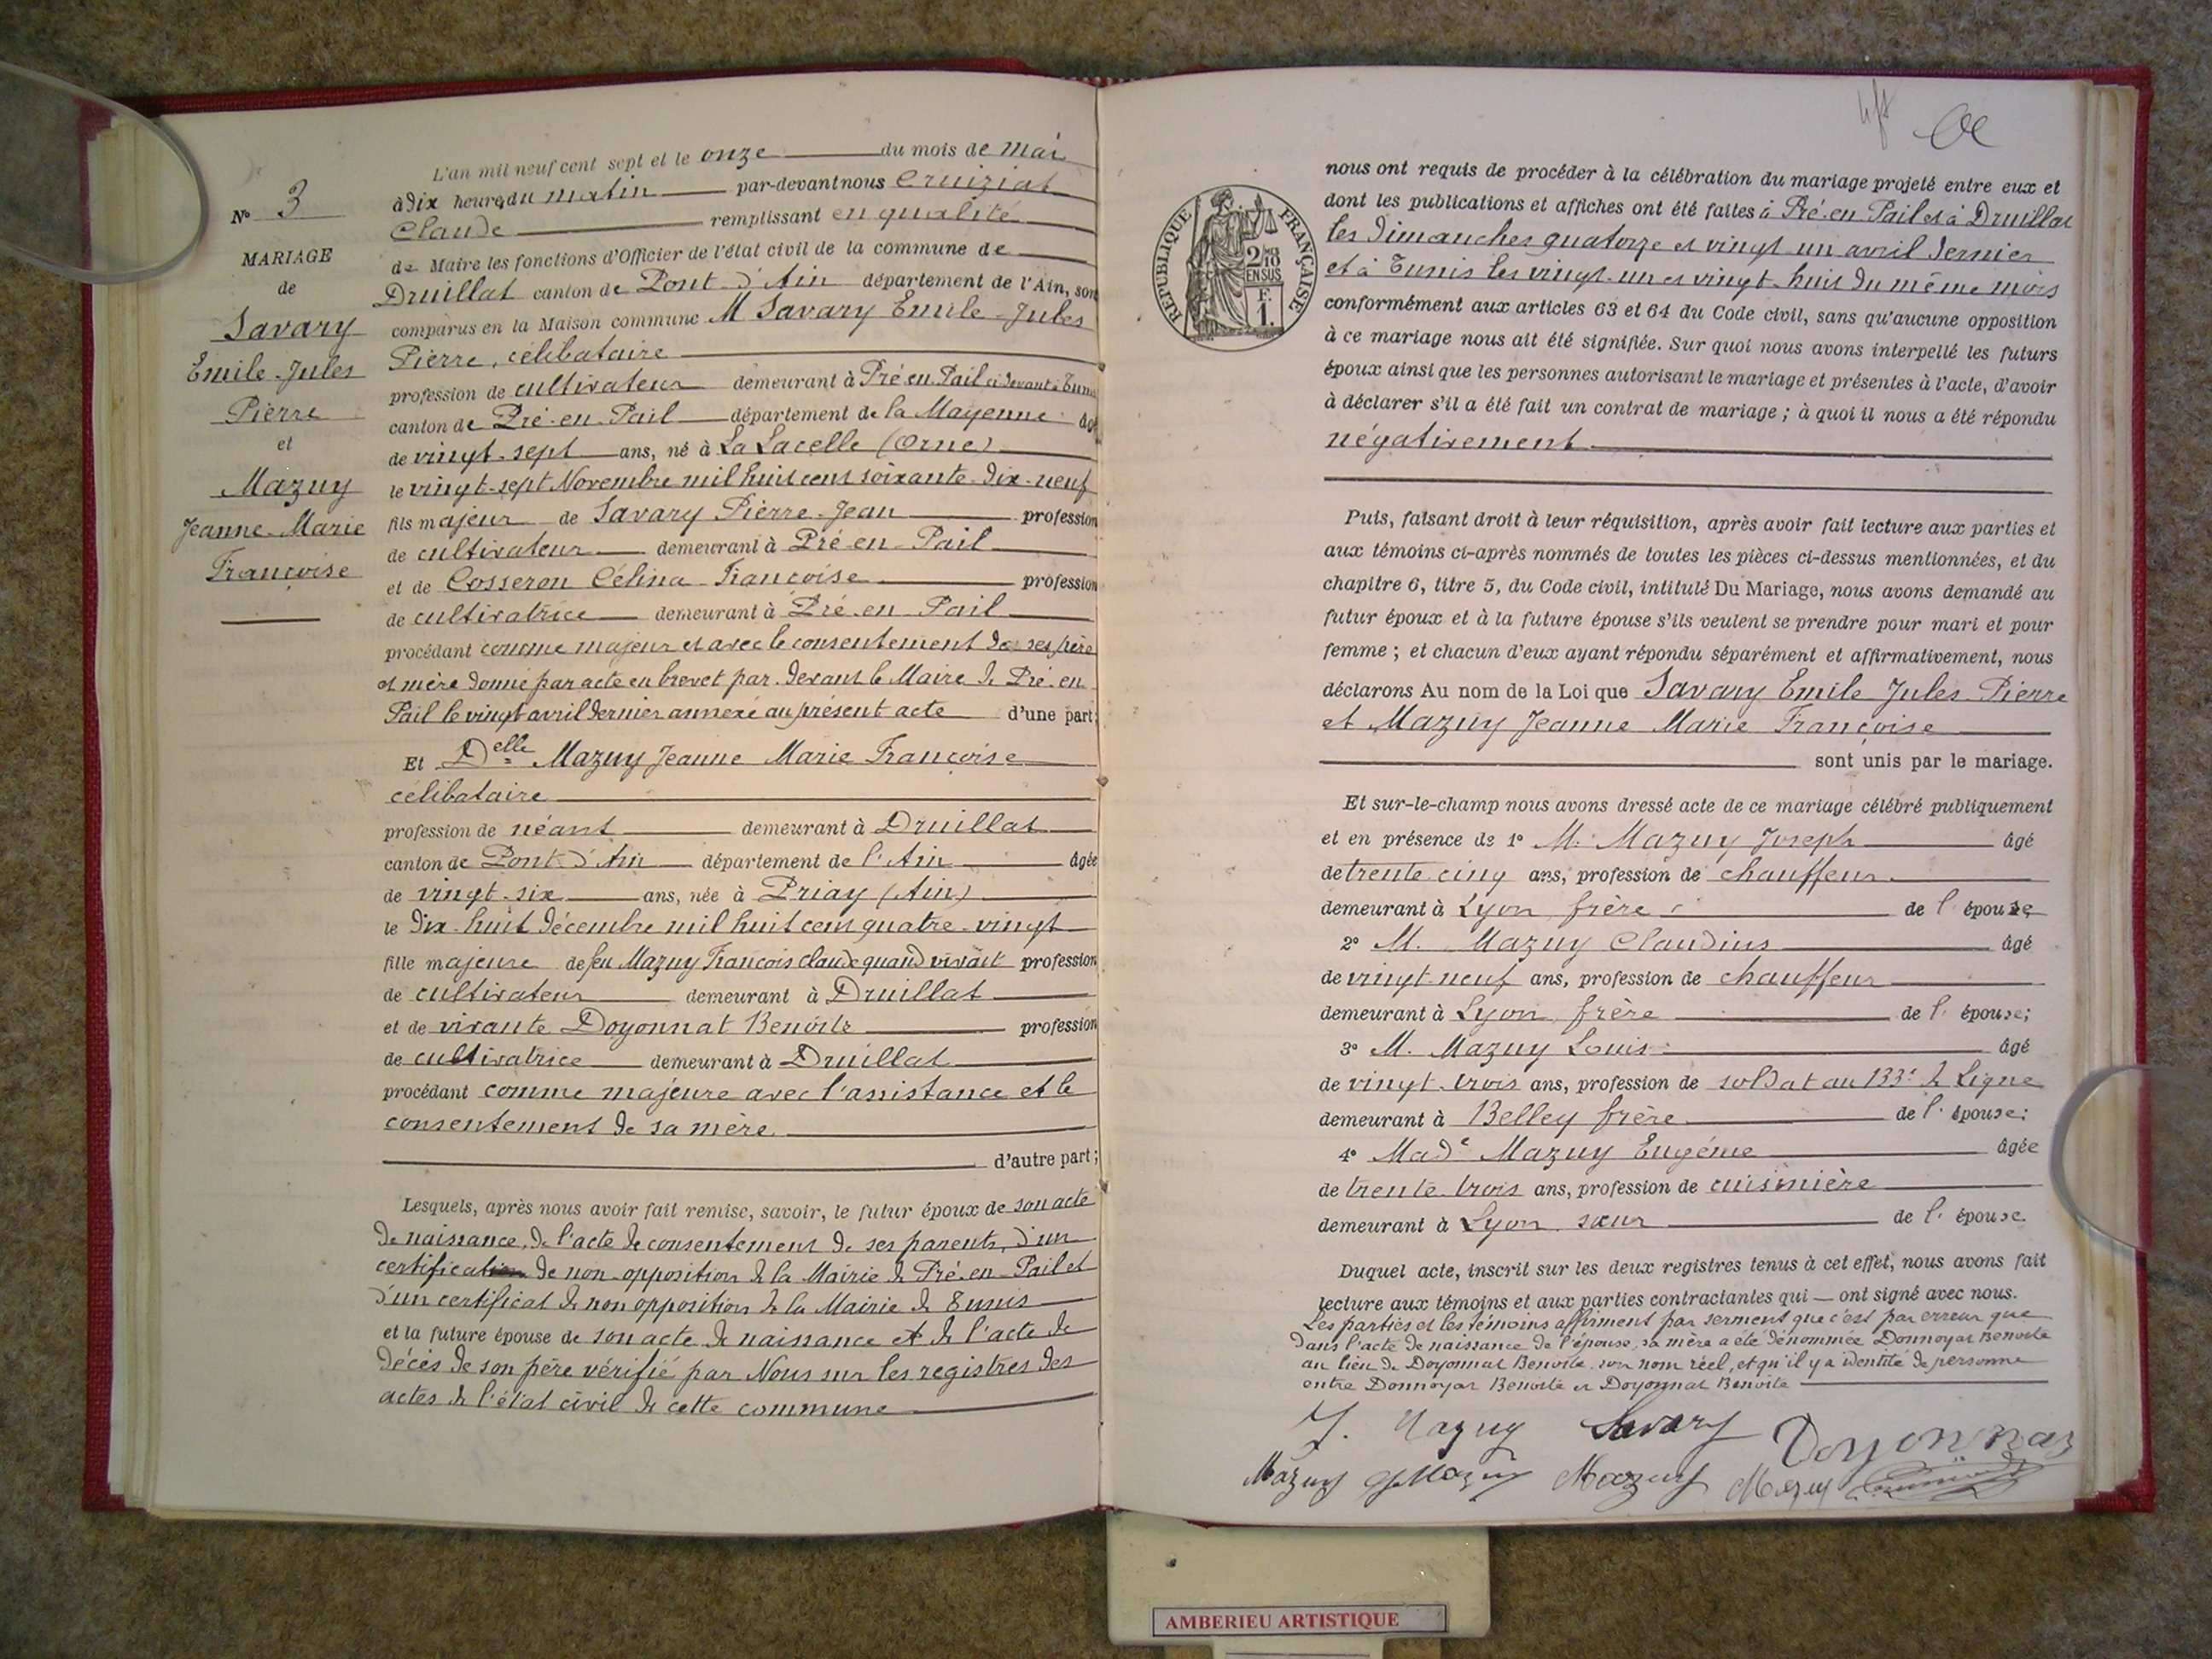 N° 3
MARIAGE
de
Savary
Emile-Jules
Pierre
et
Mazuy
Jeanne-Marie
Françoise
L'an mil neuf cent sept et le onze du mois de mai
à dix heures du matin par-devant nous Cruiziat
Claude remplissant en qualité
de Maire les fonctions d'Officier de l'état civil de la commune de
Druillat canton de Pont-d'Ain département de l'Ain, sont
comparus en la Maison commune M Savary Emile-Jules
Pierre, célibataire
profession de cultivateur demeurant à Pré-en-Pail ci-devant à Tunis
canton de Pré-en-Pail département de la Mayenne âgé
de vingt-sept ans, né à La Lacelle (Orne)
le vingt-sept Novembre mil huit cent soixante-dix-neuf
fils majeur de Savary Pierre-Jean profession
de cultivateur demeurant à Pré-en-Pail
et de Cosseron Célina-Françoise profession
de cultivatrice demeurant à Pré-en-Pail
procédant comme majeur et avec le consentement de ses père
et mère donné par acte en brevet par-devant le Maire de Pré-en-
Pail le vingt avril dernier annexé au présent acte d'une part;
Et Delle Mazuy Jeanne Marie Françoise
célibataire
profession de néant demeurant à Druillat
canton de Pont-d'Ain département de l'Ain âgée
de vingt-six ans, née à Priay (Ain)
le dix-huit décembre mil huit cent quatre-vingt
fille majeure de feu Mazuy François Claude quand vivait profession
de cultivateur demeurant à Druillat
et de vivante Doyonnat Benoite profession
de cultivatrice demeurant à Druillat
procédant comme majeure avec l'assistance et le
consentement de sa mère
d'autre part;
Lesquels, après nous avoir fait remise, savoir, le futur époux de son acte
de naissance, de l'acte de consentement de ses parents, d'un
certificat de non-opposition de la Mairie de Pré-en-Pail et
d'un certificat de non opposition de la Mairie de Tunis
et la future épouse de son acte de naissance et de l'acte de
décès de son père vérifié par Nous sur les registres des
actes de l'état civil de cette commune
REPUBLIQUE FRANÇAISE
2/10
EN SUS
F.
1.
nous ont requis de procéder à la célébration du mariage projeté entre eux et
dont les publications et affiches ont été faites à Pré-en-Pail et à Druillat
les dimanches quatorze et vingt-un avril dernier
et à Tunis les vingt-un et vingt-huit du même mois
conformément aux articles 63 et 64 du Code civil, sans qu'aucune opposition
à ce mariage nous ait été signifiée. Sur quoi nous avons interpellé les futurs
époux ainsi que les personnes autorisant le mariage et présentes à l'acte, d'avoir
à déclarer s'il a été fait un contrat de mariage; à quoi il nous a été répondu
négativement
Puis, faisant droit à leur réquisition, après avoir fait lecture aux parties et
aux témoins ci-après nommés de toutes les pièces ci-dessus mentionnées, et du
chapitre 6, titre 5, du Code civil, intitulé Du Mariage, nous avons demandé au
futur époux et à la future épouse s'ils veulent se prendre pour mari et pour
femme; et chacun d'eux ayant répondu séparément et affirmativement, nous
déclarons Au nom de la Loi que Savary Emile Jules-Pierre
et Mazuy Jeanne Marie Françoise
sont unis par le mariage.
Et sur-le-champ nous avons dressé acte de ce mariage célébré publiquement
et en présence de 1° M. Mazuy Joseph âgé
de trente-cinq ans, profession de chauffeur
demeurant à Lyon, frère de l'épouse
2° M. Mazuy Claudius âgé
de vingt-neuf ans, profession de chauffeur
demeurant à Lyon, frère de l'épouse;
3° M. Mazuy Louis âgé
de vingt-trois ans, profession de soldat au 133e de Ligne
demeurant à Belley frère de l'épouse;
4° Made Mazuy Eugénie âgée
de trente-trois ans, profession de cuisinière
demeurant à Lyon, sœur de l'épouse.
Duquel acte, inscrit sur les deux registres tenus à cet effet, nous avons fait
lecture aux témoins et aux parties contractantes qui — ont signé avec nous.
Les parties et les témoins affirment par serment que c'est par erreur que
dans l'acte de naissance de l'épouse, sa mère a été dénommée Donnoyat Benoite
au lieu de Doyonnat Benoite son nom réel, et qu'il y a identité de personne
entre Donnoyat Benoite et Doyonnat Benoite
J. Mazuy Savary Doyonnaz
Mazuy Mazuy Mazuy Mazuy
AMBERIEU ARTISTIQUE